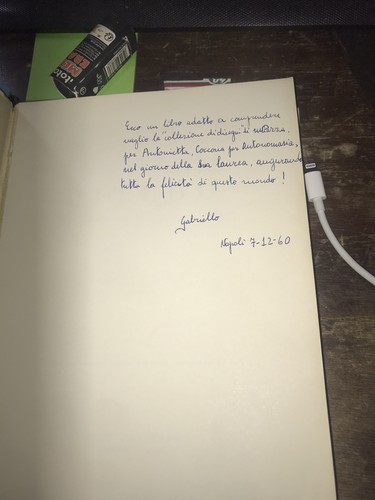 Ecco un libro adatto a comprendere
meglio la "collezione di disegni" di
per Antonietta, Coccona per Autonomasia,
nel giorno della sua laurea, augurando
tutta la felicità di questo mondo!
Gabriello
Napoli 7-12-60